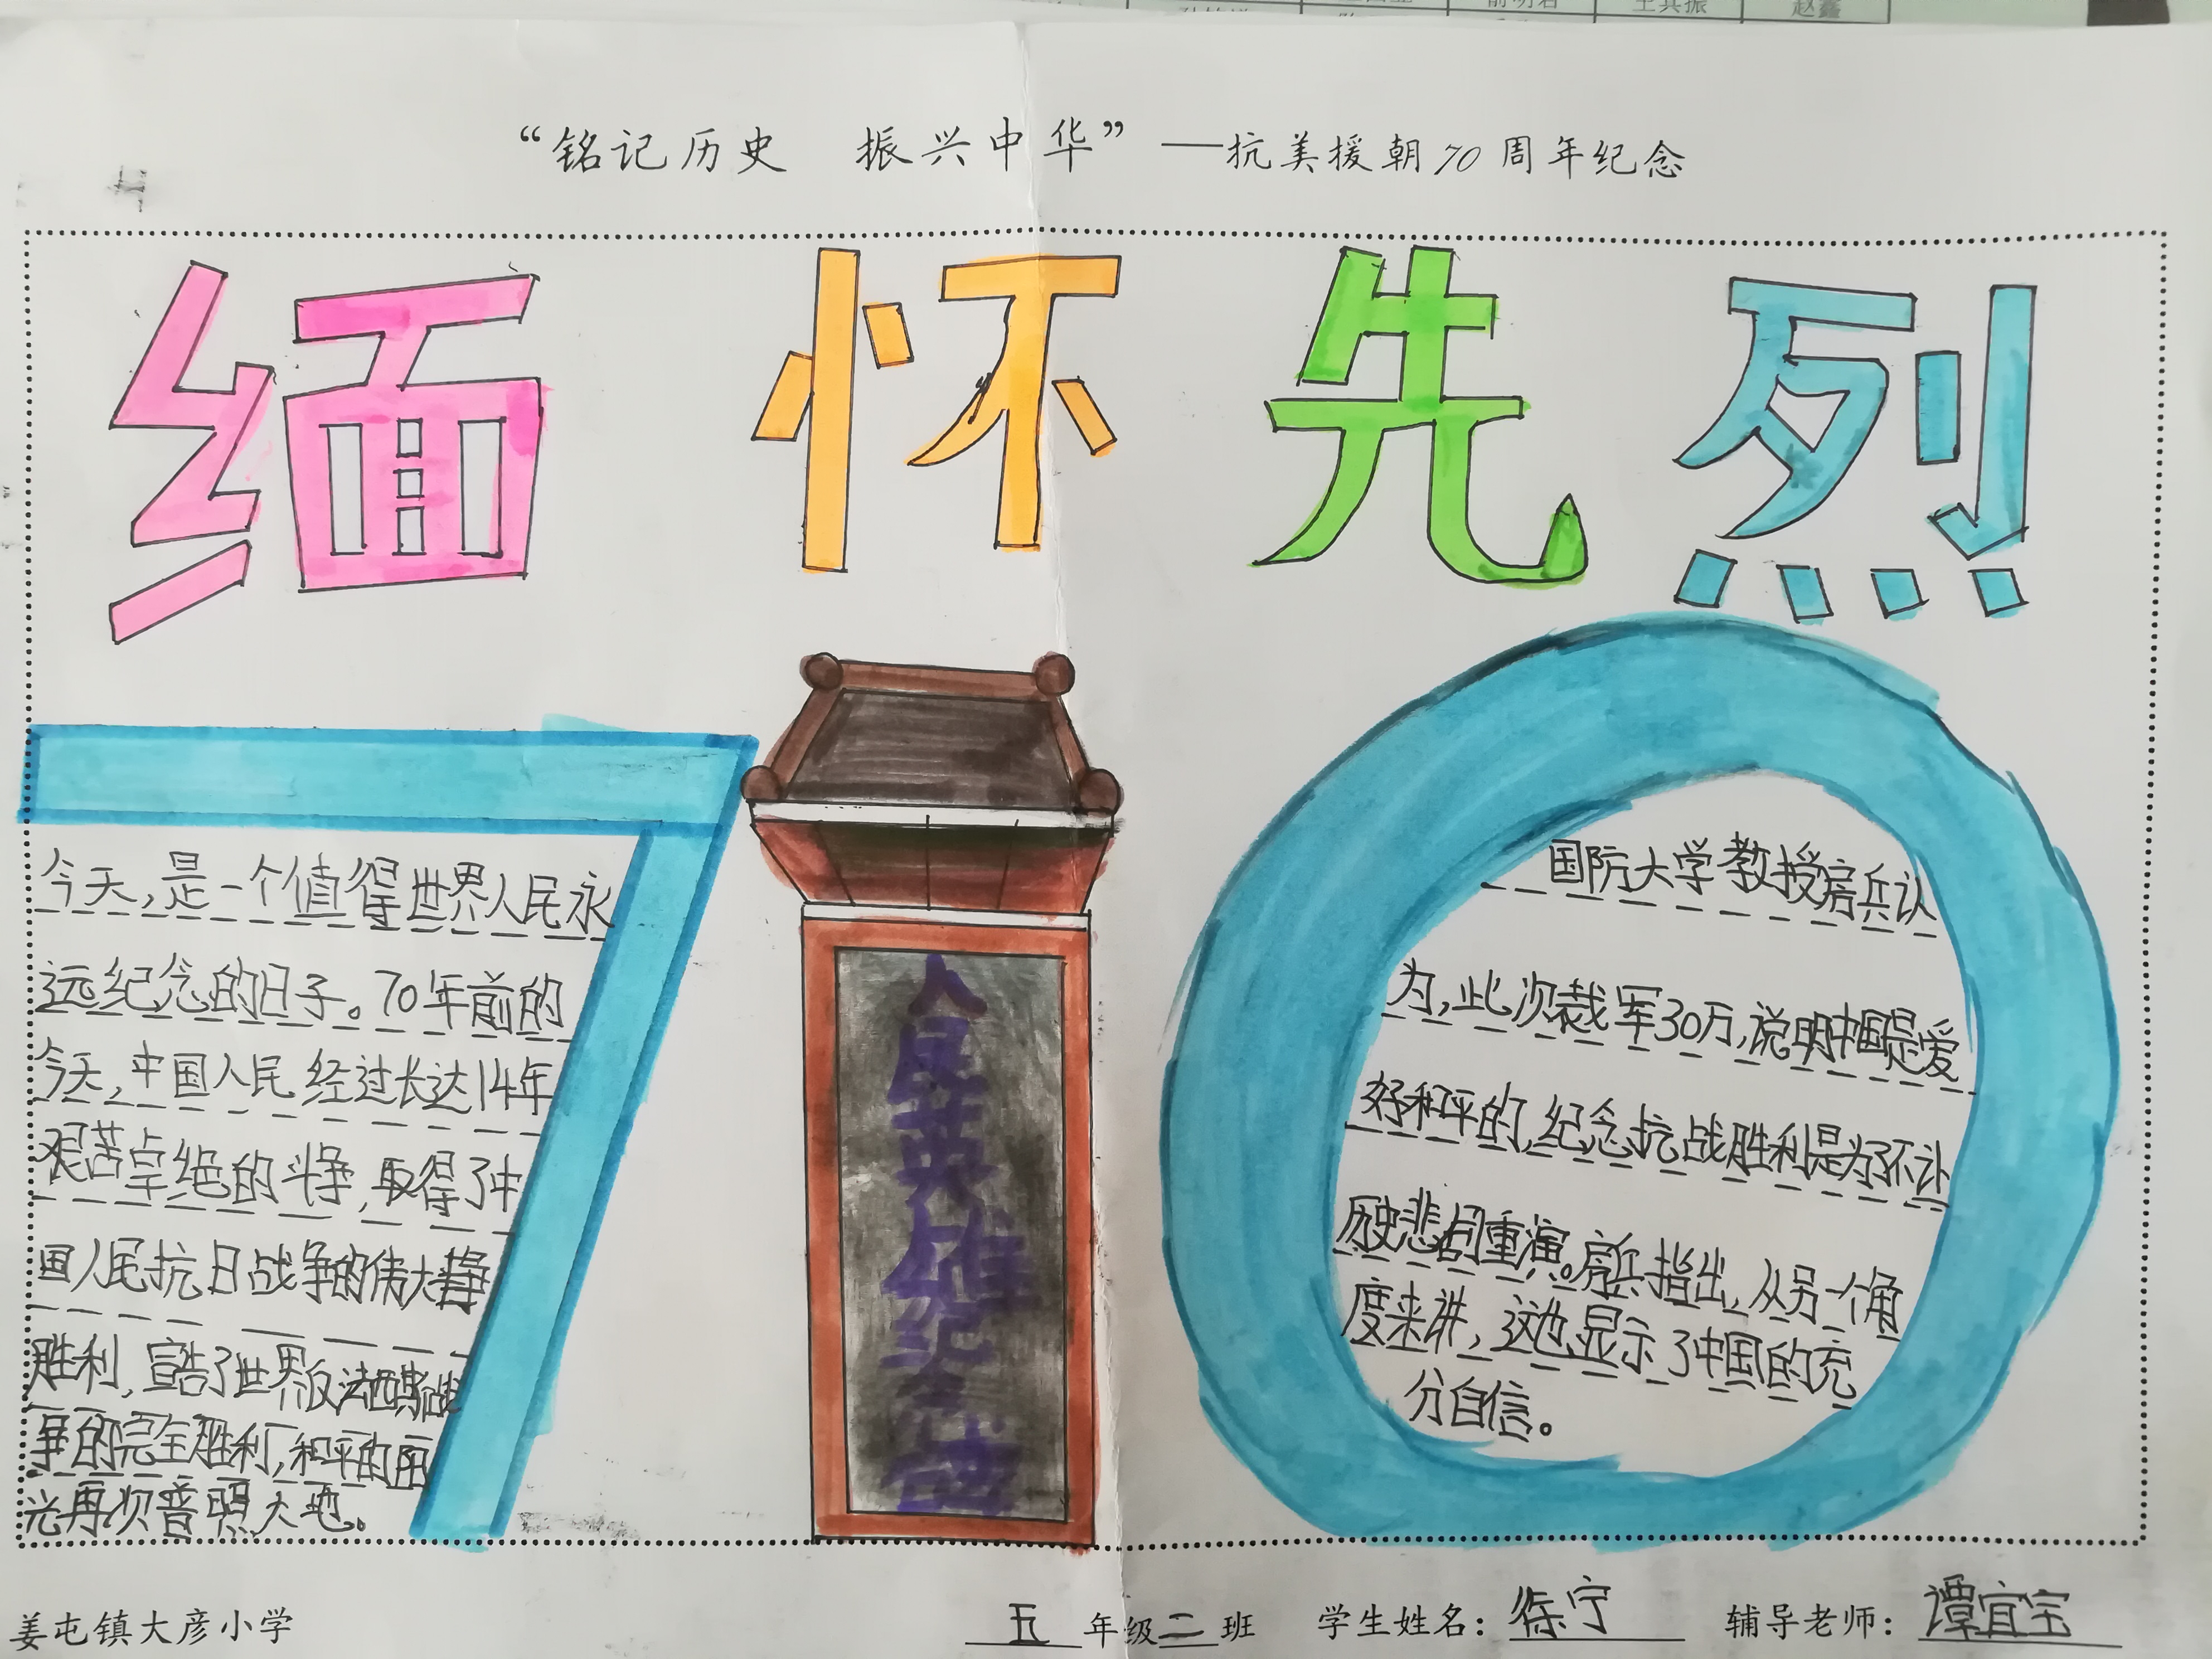 王其振
赵鑫
“铭记历史 振兴中华”——抗美援朝70周年纪念
缅怀先烈
70
今天,是一个值得世界人民永
远纪念的日子。70年前的
今天,中国人民经过长达14年
艰苦卓绝的斗争,取得了中
国人民抗日战争的伟大
胜利,宣告了世界反法西斯战
争的完全胜利,和平的阳
光再次普照大地。
人民英雄纪念碑
国防大学教授房兵认
为,此次裁军30万,说明中国是爱
好和平的,纪念抗战胜利是为了不让
历史悲剧重演。房兵指出,从另一个角
度来讲,这也显示了中国的充
分自信。
姜屯镇大彦小学 五年级二班 学生姓名:徐宁 辅导老师:谭宜宝